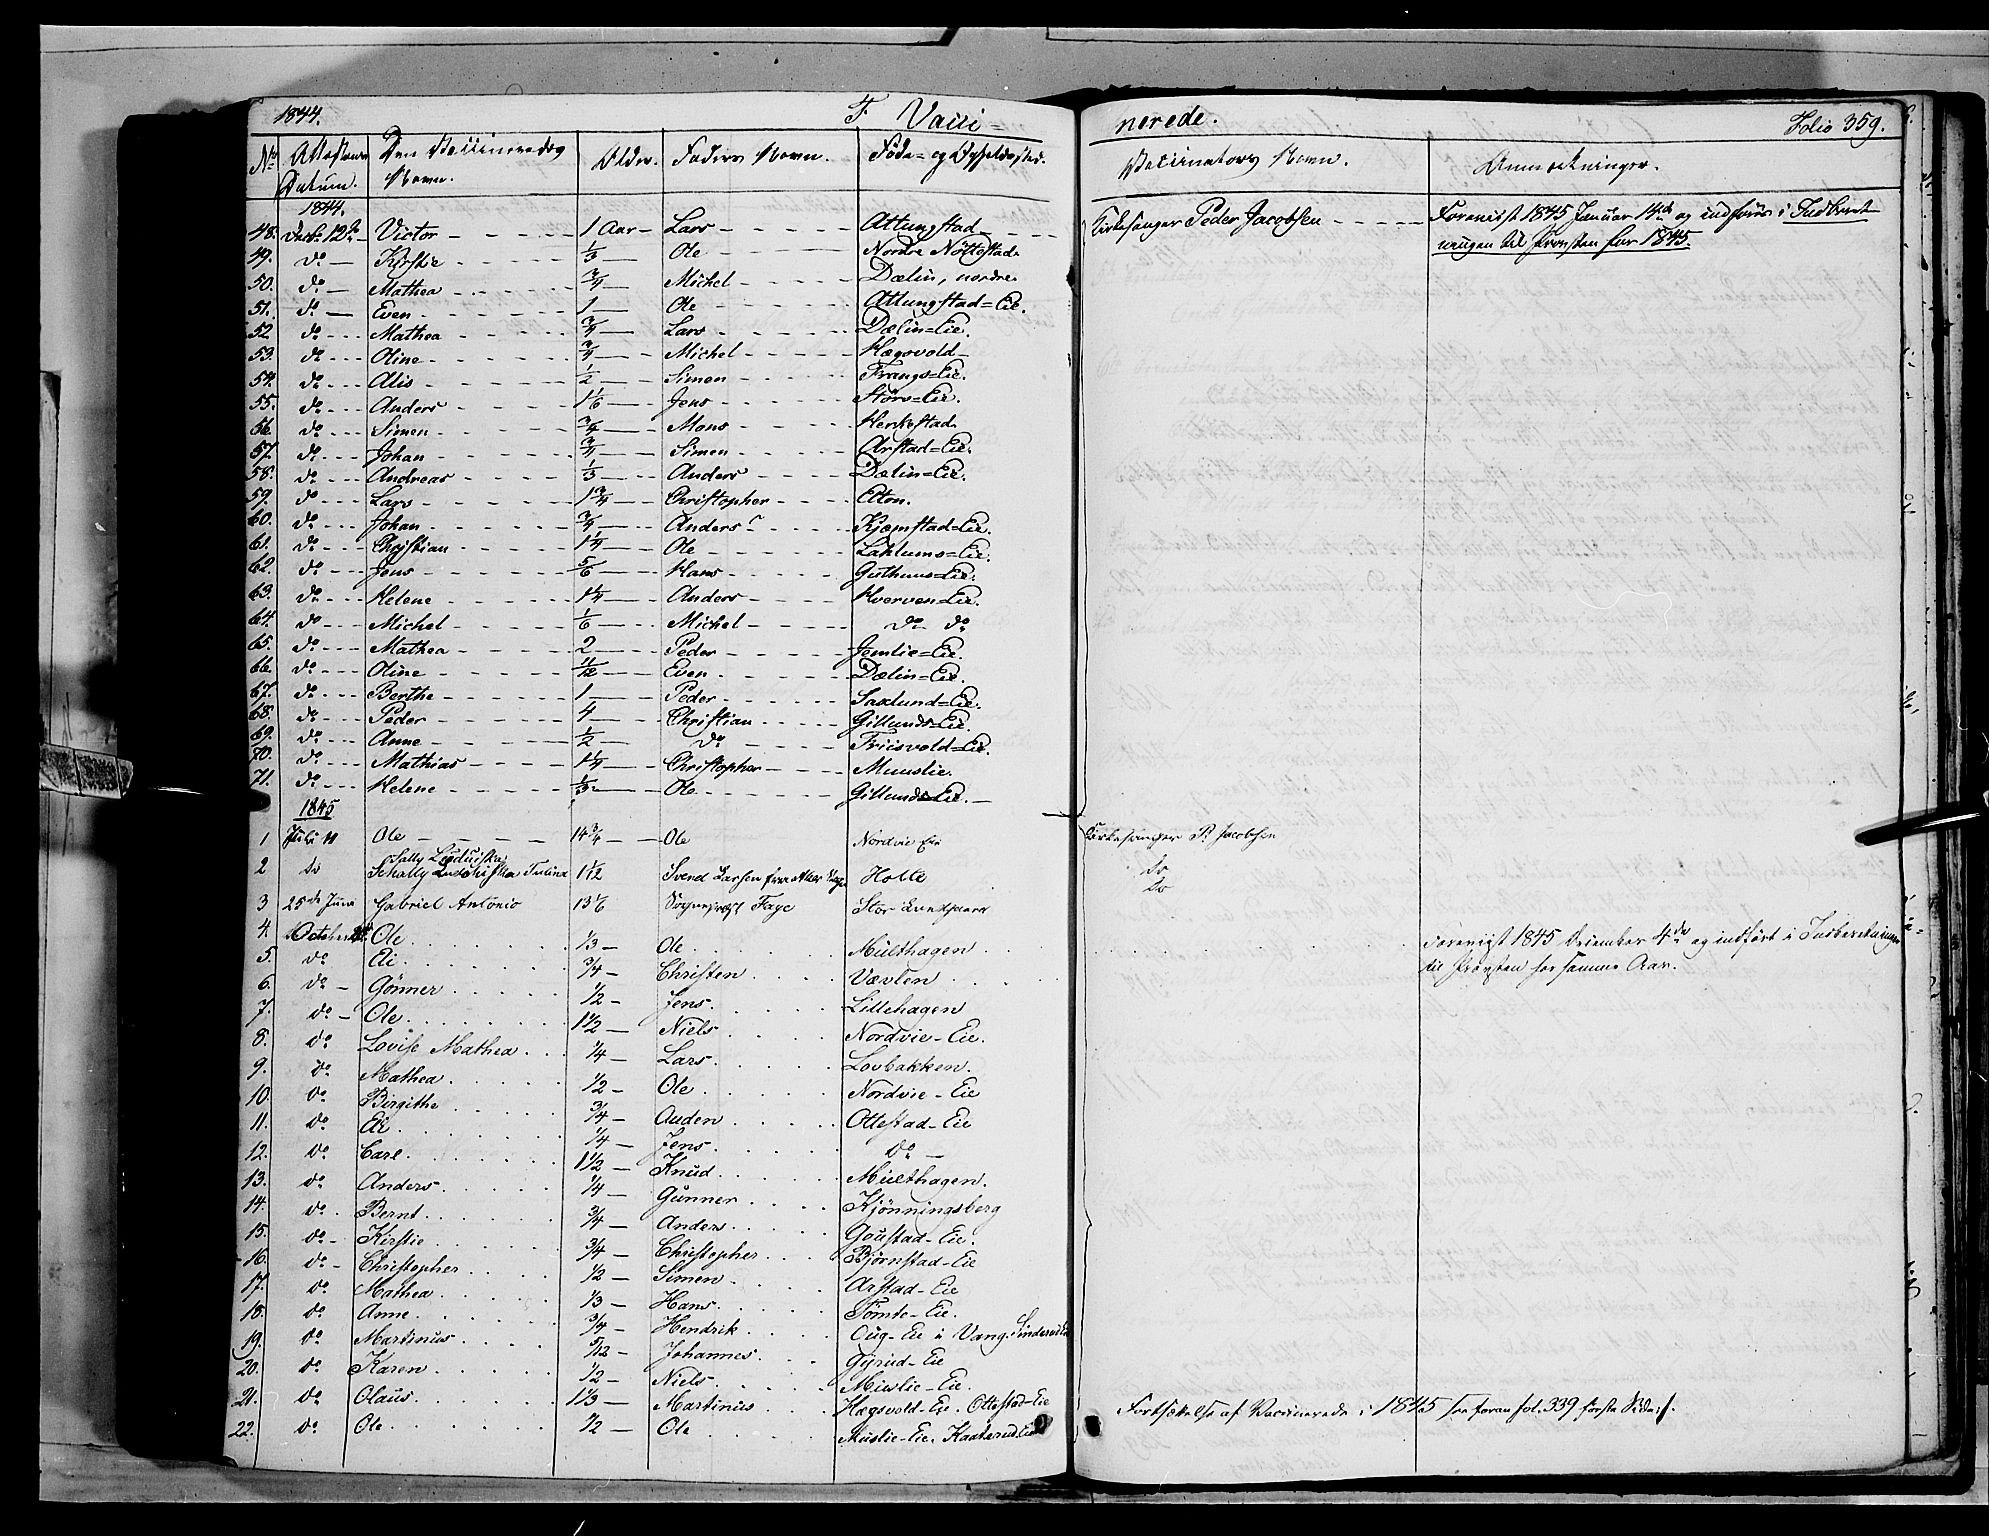 1844.
F. Vacci=
nerede.
Folio 359.
No Attestens Datum. Den Vaccineredes Navn. Alder. Faders Navn. Føde= og Opholdssted. Vaccinators Navn. Anmærkninger.
1844.
48. Decbr 12te Victor 1 Aar Lars Attungstad Kirkesanger Peder Jacobsen Forevist 1845 Januar 14de og indføres i Indberet
49. do Kirstie 1/3 Ole Nordre Nøttestad ningen til Provsten for 1845.
50. do Mathea 3/4 Michel Dælin, nordre
51. do Even 1 Ole Attungstad=Eie.
52 do Mathea 3/4 Lars Dælin=Eie.
53. do Oline 3/4 Michel Hægsvold
54. do Alis 1/2 Simen Frangs=Eie.
55. do Anders 1 1/6 Jens Störs=Eie.
56. do Simen 3/4 Mons Herkestad
57. do Johan 3/4 Simen Arstad=Eie.
58. do Andreas 1/3 Anders Dælin=Eie.
59. do Lars 1 3/4 Christopher Elton.
60. do Johan 3/4 Anders Kjæmstad=Eie.
61. do Christian 1 1/4 Ole Laklums=Eie.
62 do Jens 5/6 Hans Guthuus=Eie.
63. do Helene 1 1/4 Anders Hverven=Eie.
64. do Michel 1/6 Michel do do
65. do Mathea 2 Peder Jemlie=Eie.
66. do Oline 11/12 Even Dælin=Eie.
67. do Berthe 1 Peder Saxlund=Eie.
68. do Peder 4 Christian Gillunds=Eie.
69. do Anne 1/2 do Friisvold=Eie.
70. do Mathias 1 1/4 Christopher Muuslie.
71. do Helene 1/3 Ole Gillunds=Eie.
1845
1 Juli 11 Ole 14 3/4 Ole Nordvie Eie Kirkesanger P. Jacobsen
Sally Ludviska
2 do Schally Ludviska Tulina 1 1/12 Svend Larsen fra Aker Holte do
3 25de Juni Gabriel Antonio 13 1/6 Sognepræst Faye Stor Lundgaard do
4. October Ole 1/3 Ole Multhagen Forevigst 1845 December 4de og indført i Indberetningen
5. do Eli 3/4 Christen Væxlen til Provsten for samme Aar.
6. do Gönner 1/2 Jens Lillehagen
7. do Ole 1 1/2 Niels Nordvie-Eie.
8. do Lovise Mathea 1/4 Lars Lovbakken.
9. do Mathea 1/2 Ole Nordvie-Eie
10. do Birgithe 3/4 Auden Ottestad-Eie
11. do Eli 1/4 Jens do
12. do Carl 1 1/2 Knud Multhagen.
13. do Anders 1/4 Gunner Kjønningsberg
14. do Bernt 3/4 Anders Goustad-Eie.
15. do Kirstie 3/4 Christopher Bjørnstad-Eie
16. do Christopher 1/2 Simen Arstad-Eie
17. do Mathea 1/3 Hans Tømte-Eie.
18. do Anne 3/4 Hendrik Oug-Eie i Vang. Sinderud Eie
19. do Martinus 5/12 Johannes Gyrud-Eie
20. do Karen 1/2 Niels Muslie-Eie.
21. do Olaus 1 1/3 Martinus Hægsvold-Eie. Ottestad-Eie
22. do Ole 1/2 Ole Muslie-Eie. Kaaterud Eie
Fortsættelse af Vaccinerede i 1845 see foran fol. 339 første Side.